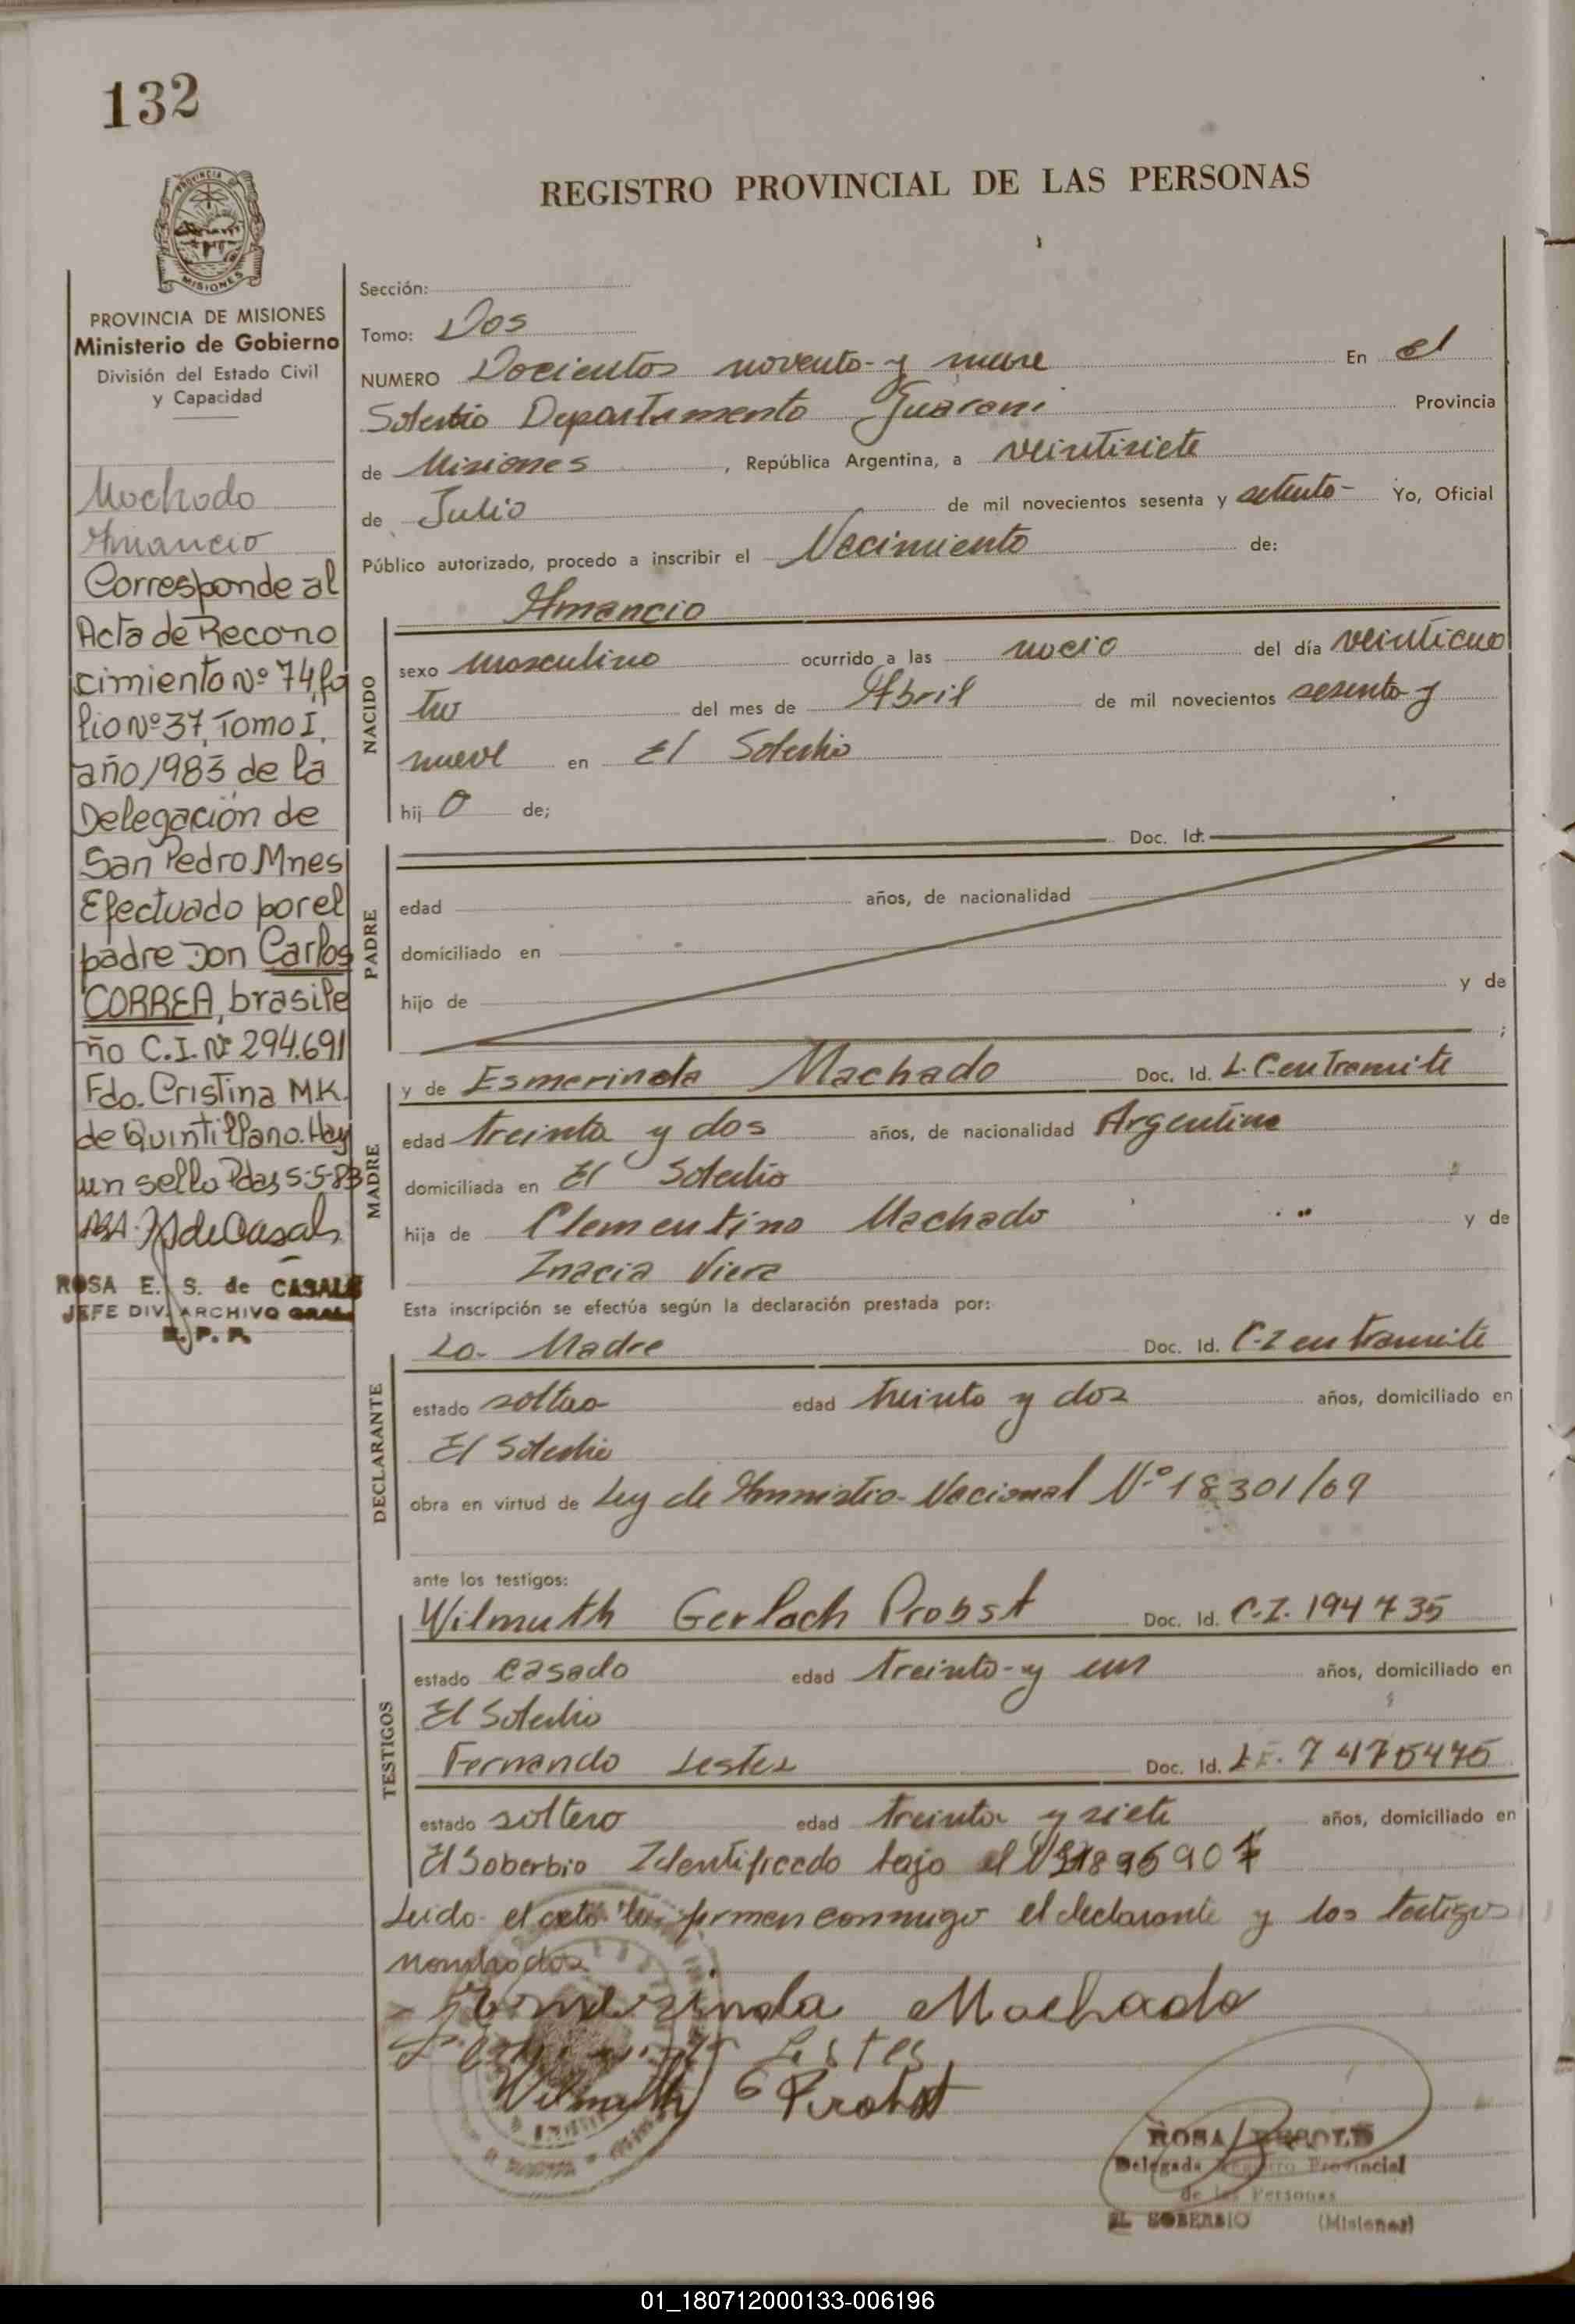 132
REGISTRO PROVINCIAL DE LAS PERSONAS
PROVINCIA DE MISIONES
Ministerio de Gobierno
División del Estado Civil
y Capacidad
Machado
Amancio
Corresponde al
Acta de Recono
cimiento Nº 74, fo
lio Nº 37, Tomo I,
año 1983 de la
Delegación de
San Pedro Mnes
Efectuado por el
padre Don Carlos
CORREA, brasile
ño C.I. Nº 294.691
Fdo. Cristina M.K.
de Quintillano. Hay
un sello Pdas 5-5-83
ROSA E. S. de CASALS
JEFE DIV. ARCHIVO GRAL.
R. P. P.
Sección:
Tomo: Dos
NUMERO Docientos noventa y nueve En el
Soberbio Departamento Guarani Provincia
de Misiones, República Argentina, a veintisiete
de Julio de mil novecientos sesenta y setenta Yo, Oficial
Público autorizado, procedo a inscribir el Nacimiento de:
Amancio
NACIDO
sexo masculino ocurrido a las del día veinticua
tro del mes de Abril de mil novecientos sesenta y
nueve en El Soberbio
hij o de;
PADRE
Doc. Id.
edad años, de nacionalidad
domiciliado en
hijo de y de
;
MADRE
y de Esmerinda Machado Doc. Id. L.C. en Tramite
edad treinta y dos años, de nacionalidad Argentina
domiciliada en El Soberbio
hija de Clementino Machado y de
Inacia Viera
Esta inscripción se efectúa según la declaración prestada por:
DECLARANTE
La Madre Doc. Id. C.I en tramite
estado edad treinta y dos años, domiciliado en
El Soberbio
obra en virtud de Ley de Amnistia Nacional Nº 18301/69
ante los testigos:
TESTIGOS
Wilmuth Gerlach Probst Doc. Id. C.I. 194735
estado casado edad treinta y un años, domiciliado en
El Soberbio
Fernando Lestes Doc. Id. L.E. 7475475
estado soltero edad treinta y siete años, domiciliado en
El Soberbio Identificado bajo el
Leido el acta la firman conmigo el declarante y los testigos
nombrados
Esmerinda Machado
Lestes
Wilmuth G Probst
ROSA
Delegada Registro Provincial
de las Personas
EL SOBERBIO (Misiones)
01_180712000133-006196